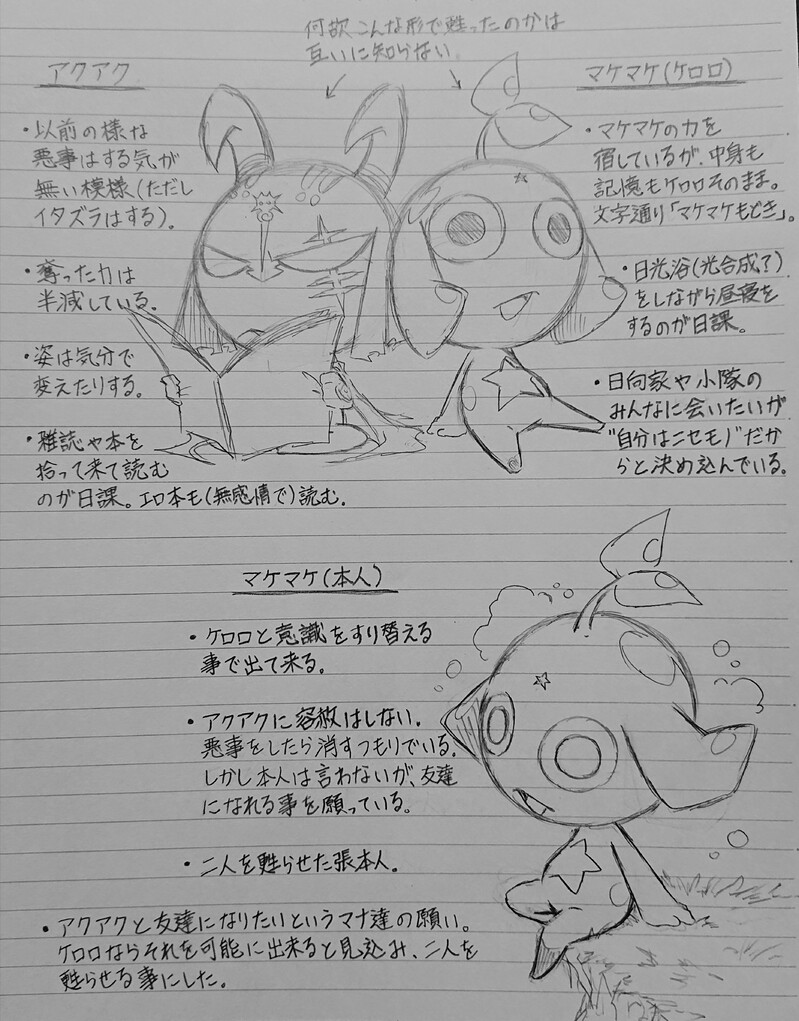 何故こんな形で甦ったのかは
互いに知らない
アクアク
・以前の様な
悪事はする気が
無い模様(ただし
イタズラはする)。
・奪った力は
半減している。
・姿は気分で
変えたりする。
・雑誌や本を
拾って来て読む
のが日課。エロ本も(無感情で)読む.
マケマケ(ケロロ)
・マケマケの力を
宿しているが、中身も
記憶もケロロそのまま。
文字通り「マケマケもどき」。
・日光浴(光合成?)
をしながら昼寝を
するのが日課。
・日向家や小隊の
みんなに会いたいが
"自分はニセモノ"だか
らと決め込んでいる。
マケマケ(本人)
・ケロロと意識をすり替える
事で出て来る。
・アクアクに容赦はしない.
悪事をしたら消すつもりでいる。
しかし本人は言わないが、友達
になれる事を願っている。
・二人を甦らせた張本人。
・アクアクと友達になりたいというマナ達の願い。
ケロロならそれを可能に出来ると見込み、二人を
甦らせる事にした。